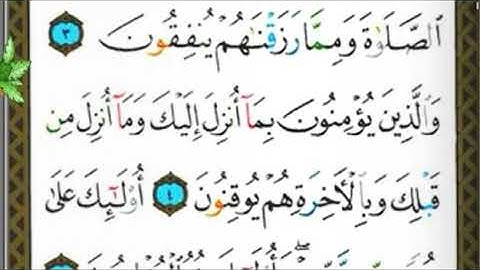 ٱلصَّلَوٰةَ وَمِمَّا رَزَقۡنَٰهُمۡ يُنفِقُونَ ٣
وَٱلَّذِينَ يُؤۡمِنُونَ بِمَآ أُنزِلَ إِلَيۡكَ وَمَآ أُنزِلَ مِن
قَبۡلِكَ وَبِٱلۡأٓخِرَةِ هُمۡ يُوقِنُونَ ٤ أُوْلَٰٓئِكَ عَلَىٰ